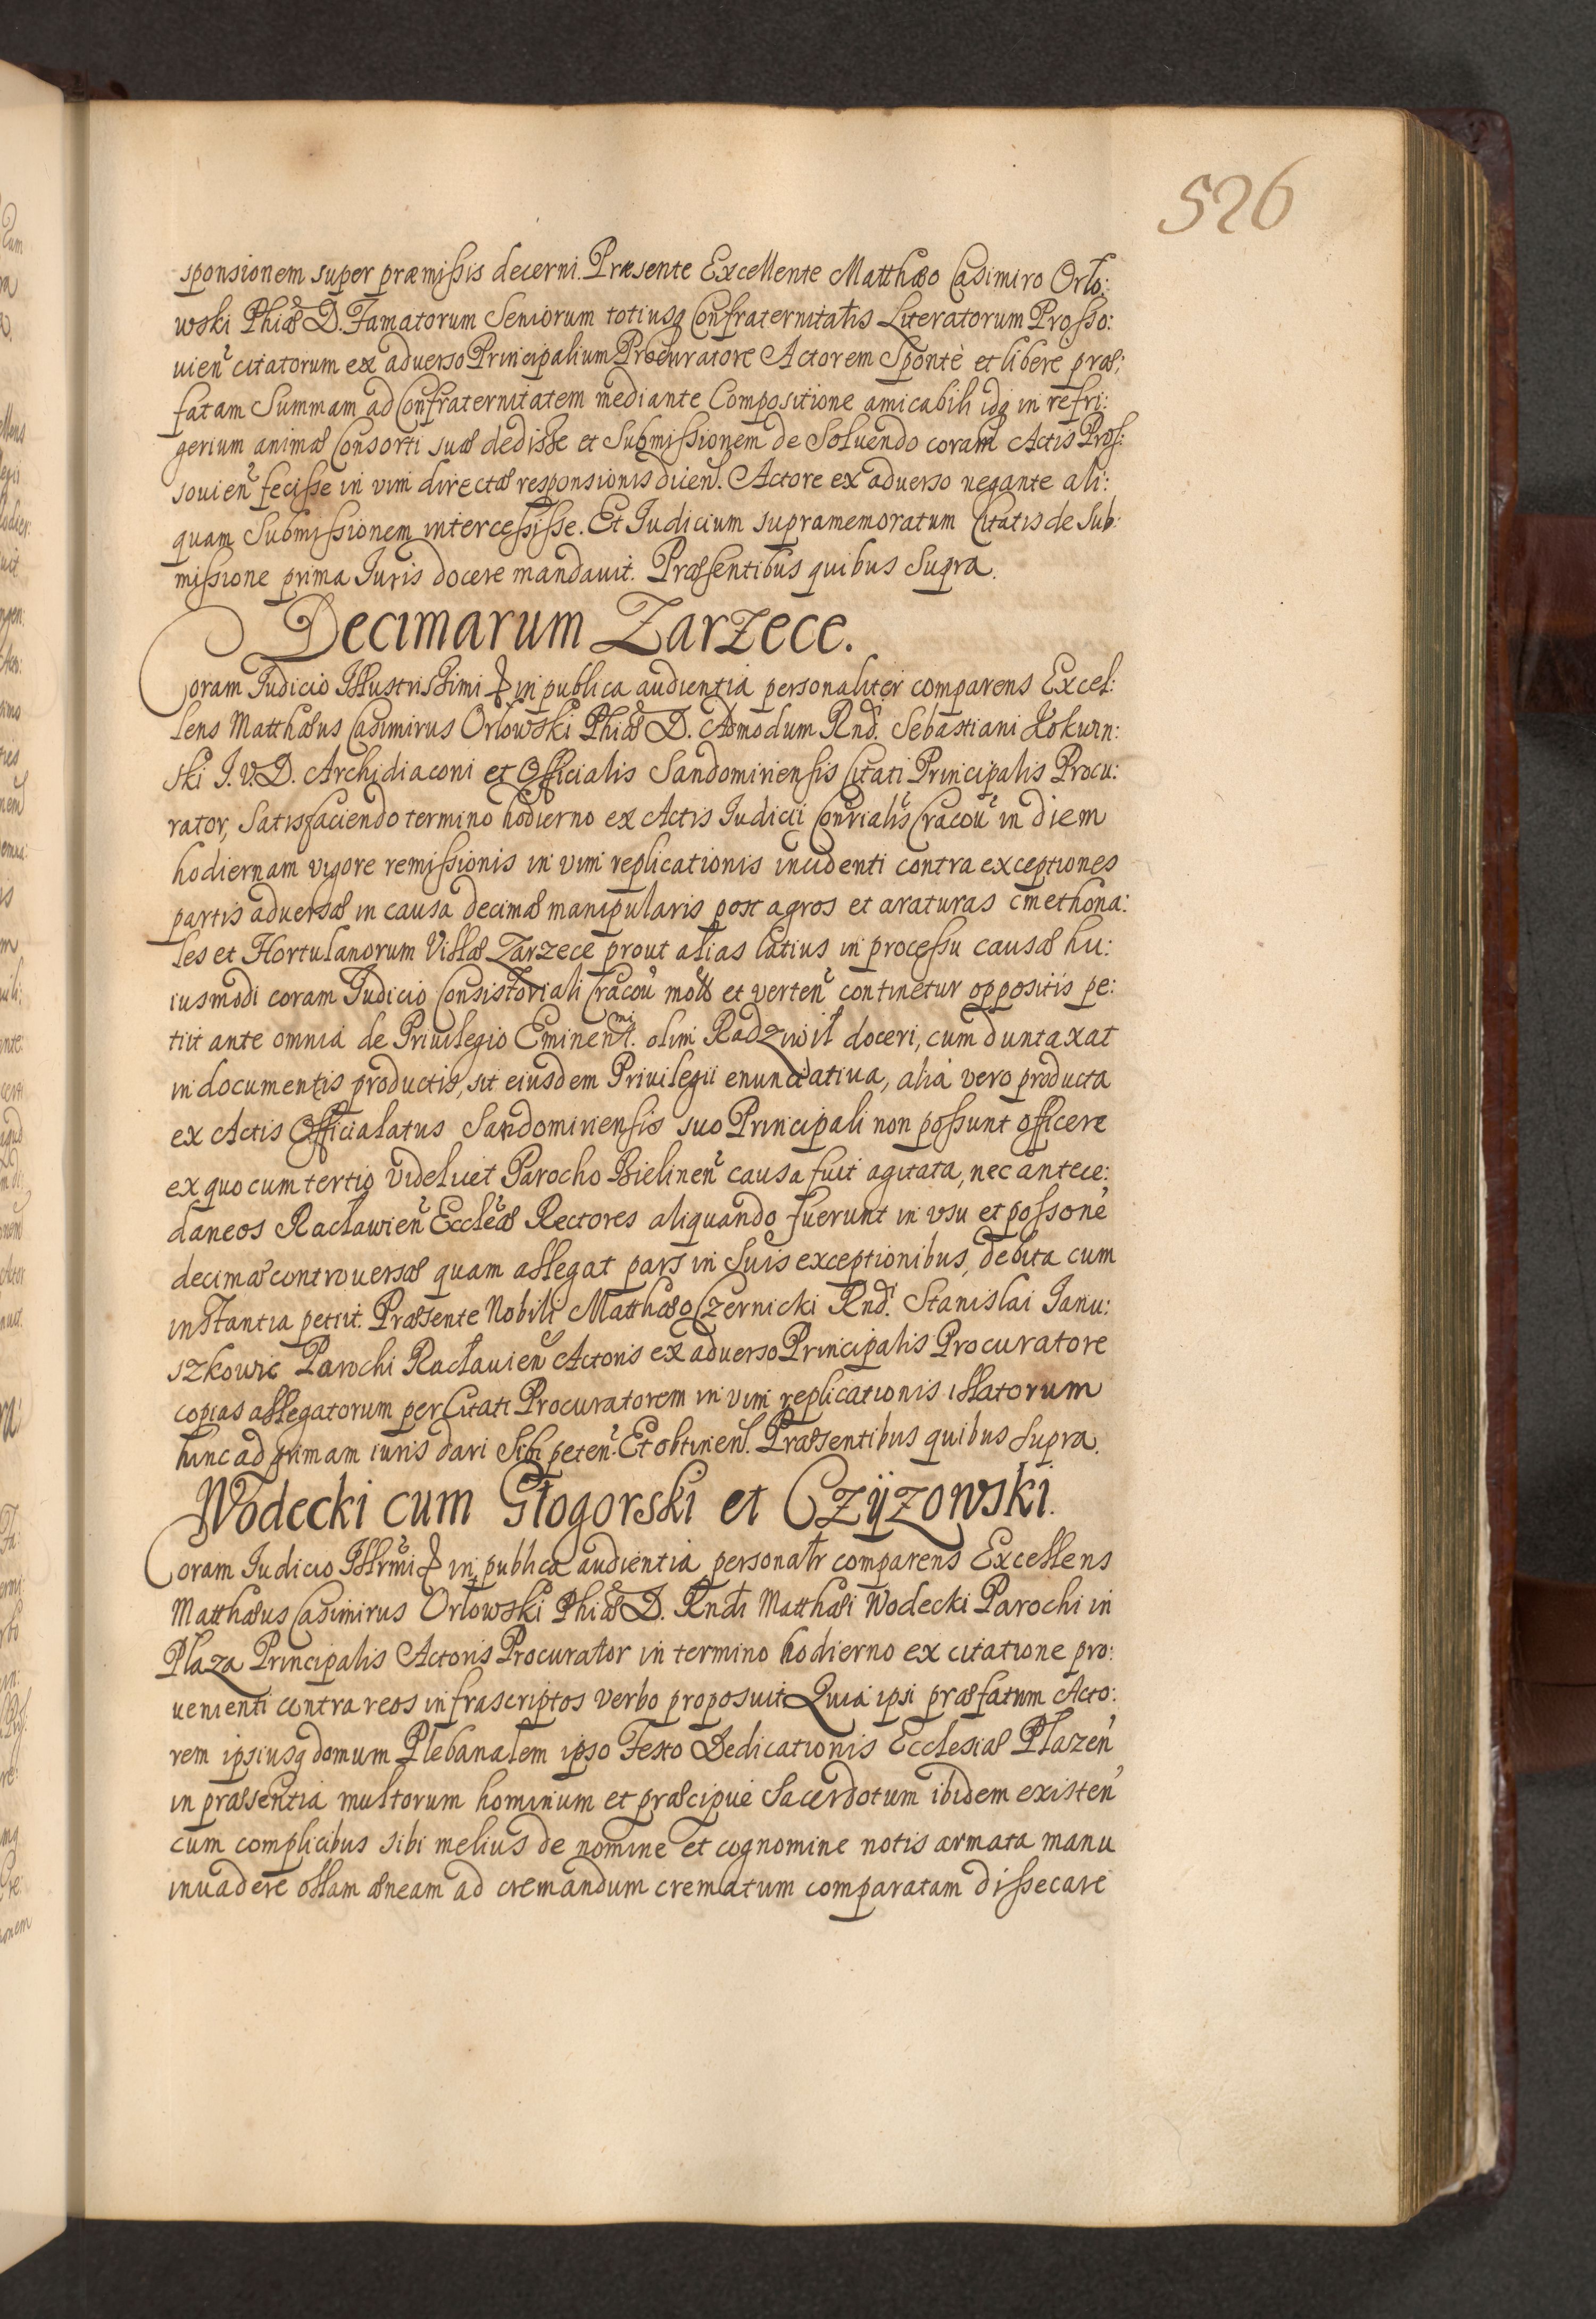 526
sponsionem super præmissis decerni. Præsente Excellente Matthæo Casimiro Orło:
wski Phiæ D. Famatorum Seniorum totiusq Confraternitatis Literatorum Prosso:
uien citatorum ex aduerso Principalium Procuratore Actorem Spontè et libere præ:
fatam Summam ad Confraternitatem mediante Compositione amicabili idq in refri:
gerium animæ Consorti suæ dedisse et Submissionem de Soluendo coram Actis Pros:
souien fecisse in vim directæ responsionis dicen. Actore ex aduerso negante ali:
quam Submissionem intercessisse. Et Iudicium supramemoratum Citatis de Sub:
missione prima Iuris docere mandauit. Præsentibus quibus Supra.
Decimarum Zarzece.
Coram Iudicio Illustrissimi & in publica audientia personaliter comparens Excel:
lens Matthæus Casimirus Orłowski Phiæ D. Admodum Rnd. Sebastiani Kokwin:
ski I.V.D. Archidiaconi et Officialis Sandomiriensis Citati Principalis Procu:
rator, Satisfaciendo termino hodierno ex Actis Iudicii Conrialis Cracou in diem
hodiernam vigore remissionis in vim replicationis incidenti contra exceptiones
partis aduersæ in causa decimæ manipularis post agros et araturas cmethona:
les et Hortulanorum Villæ Zarzece prout alias latius in processu causæ hu:
iusmodi coram Iudicio Consistoriali Cracou motæ et verten continetur oppositis pe:
tiit ante omnia de Priuilegio Eminenmi. olim Radziwił doceri, cum duntaxat
in documentis productis, sit eiusdem Priuilegii enunciatiua, alia vero producta
ex Actis Officialatus Sandomiriensis suo Principali non possunt officere
ex quo cum tertio videlicet Parocho Bielinen causa fuit agitata, nec antece:
daneos Racławien Eccleæ Rectores aliquando fuerunt in vsu et possone
decimæ controuersæ quam allegat pars in Suis exceptionibus, debita cum
instantia petiit. Præsente Nobili Matthæo Czernicki Rnd. Stanislai Ianu:
szkowic Parochi Racłauien Actoris ex aduerso Principalis Procuratore
copias allegatorum per Citati Procuratorem in vim replicationis illatorum
hinc ad primam iuris dari Sibi peten. Et obtinen. Præsentibus quibus Supra.
Wodecki cum Głogorski et Czÿzowski.
Coram Iudicio Illrmi & in publica audientia personalr comparens Excellens
Matthæus Casimirus Orłowski Phiæ D. Rndi Matthæi Wodecki Parochi in
Płaza Principalis Actoris Procurator in termino hodierno ex citatione pro:
uenienti contra reos infrascriptos verbo proposuit Quia ipsi præfatum Acto:
rem ipsiusq domum Plebanalem ipso Festo Dedicationis Ecclesiæ Płazen
in præsentia multorum hominum et præcipue Sacerdotum ibidem existen
cum complicibus sibi melius de nomine et cognomine notis armata manu
inuadere ollam æneam ad cremandum crematum comparatam dissecare